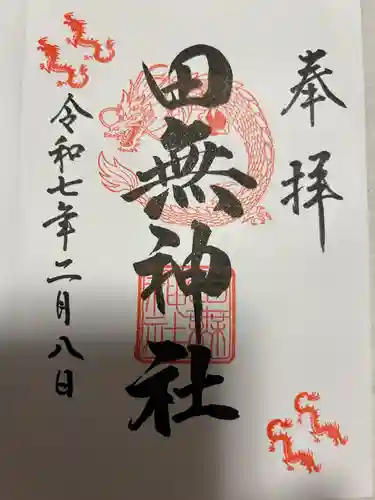 奉拝
田無神社
田無神社
令和七年二月八日